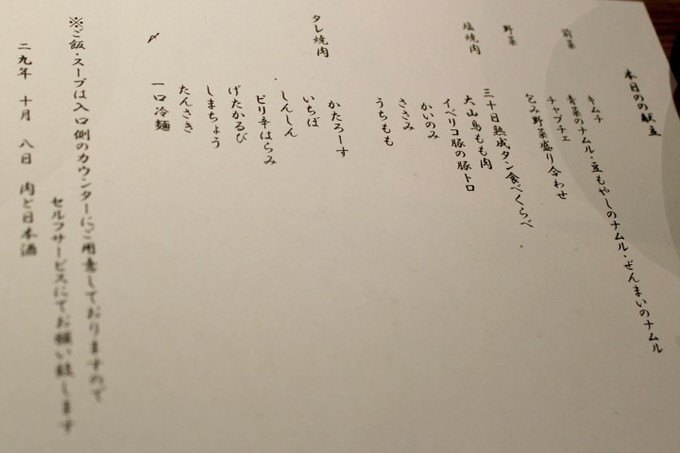 本日のの献立
前菜
キムチ
青菜のナムル・豆もやしのナムル・ぜんまいのナムル
チャプチェ
野菜
包み野菜盛り合わせ
塩焼肉
三十日熟成タン食べくらべ
大山鳥もも肉
イベリコ豚の豚トロ
かいのみ
ささみ
うちもも
タレ焼肉
かたろーす
いちぼ
しんしん
ピリ辛はらみ
げたかるび
しまちょう
たんさき
〆
一口冷麺
※ご飯・スープは入口側のカウンターにご用意しておりますので
セルフサービスにてお願い致します
二九年 十月 八日 肉と日本酒